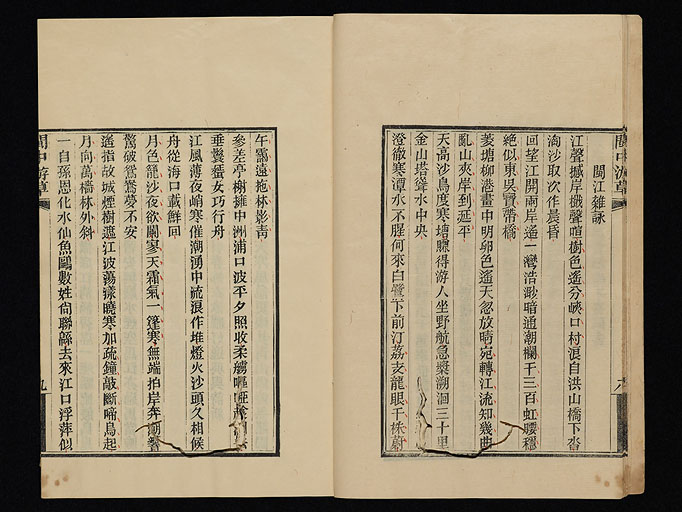 閩中游草
閩江雜詠
江聲撼岸櫓聲喧樹色遙分峽口村浪自洪山橋下沓
淘沙取次作晨昏
回望江開兩岸遙一灣浩渺暗通潮欄干三百虹腰穩
絶似東吳寶帶橋
菱塘柳港畫中明卯色遙天忽放晴宛轉江流知幾曲
亂山夾岸到延平
天高沙鳥度寒塘賺得游人坐野航急槳溯洄三十里
金山塔聳水中央
澄徹寒潭水不腥何來白鷺下前汀荔支龍眼千株蔚
午靄遠拖林影青
參差亭榭擁中洲浦口波平夕照收柔艣嘔啞
垂鬟蜑女巧行舟
江風薄夜峭寒催潮湧中流浪作堆燈火沙頭久相候
舟從海口載鮮回
月色籠沙夜欲闌寥天霜氣一篷寒無端拍岸奔潮響
驚破鴛鴦夢不安
遙指故城煙樹遮江波蕩漾曉寒加疏鐘敲斷啼烏起
月向萬檣林外斜
一自孫恩化水仙魚鷗數姓尙聯緜去來江口浮萍似
閩中游草
九